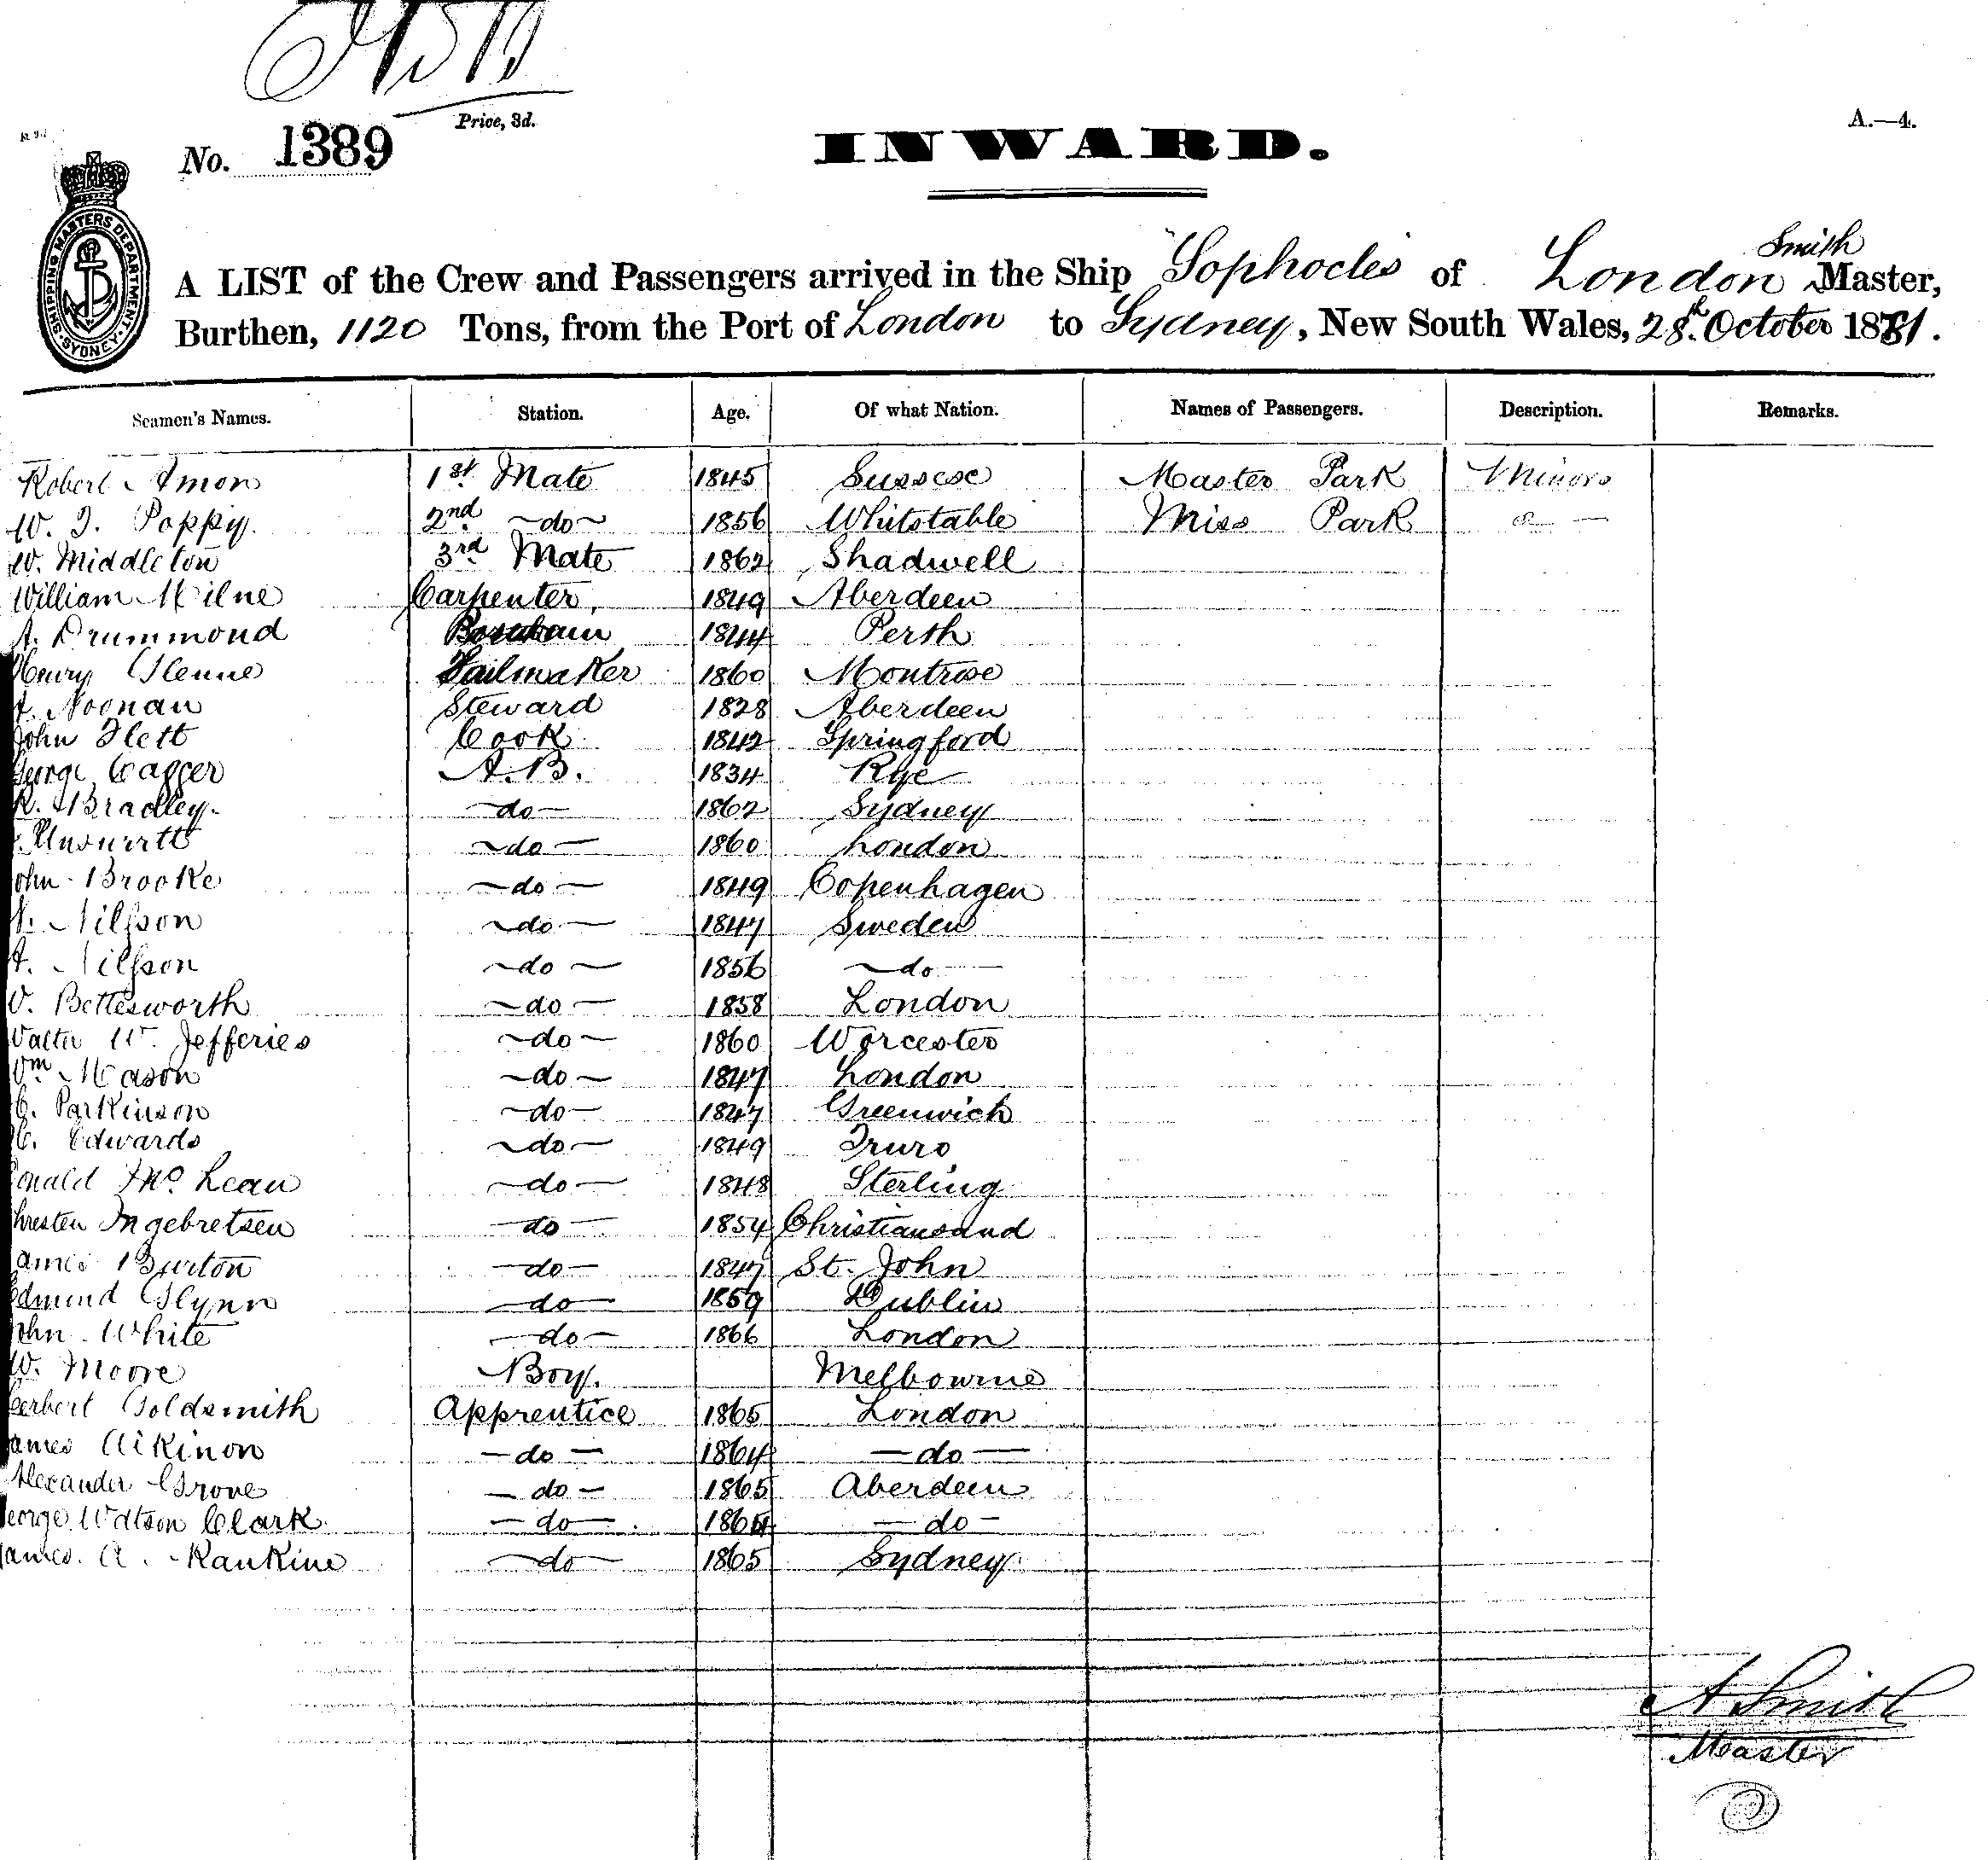 Price, 3d.
No. 1389
INWARD.
A.—4.
SHIPPING MASTERS DEPARTMENT SYDNEY
Smith
A LIST of the Crew and Passengers arrived in the Ship "Sophocles of London Master,
Burthen, 1120 Tons, from the Port of London to Sydney, New South Wales, 28th October 1881.
Seamen's Names. Station. Age. Of what Nation. Names of Passengers. Description. Remarks.
Robert Amon 1st Mate 1845 Sussex Master Park Minors
W. J. Poppy. 2nd do 1856 Whitstable Miss Park
W. Middleton 3rd Mate 1862 Shadwell
William Milne Carpenter, 1849 Aberdeen
A. Drummond 1844 Perth
Henry Glenne Sailmaker 1860 Montrose
A. Noonan Steward 1828 Aberdeen
John Flett Cook 1842 Springford
George Cagger A.B. 1834 Rye
R. Bradley. do 1862 Sydney
do 1860 London
John Brooke do 1849 Copenhagen
N. Nilsson do 1847 Sweden
A. Nilsson do 1856 do
Bettesworth do 1858 London
Walter W. Jefferies do 1860 Worcester
Wm Mason do 1847 London
C. Parkinson do 1847 Greenwich
C. Edwards do 1849 Truro
Donald McLean do 1848 Sterling
Chresten Ingebretsen do 1854 Christiansand
James Burton do 1847 St. John
Edmund Glynn do 1859 Dublin
John White do 1866 London
W. Moore Boy. Melbourne
Herbert Goldsmith Apprentice 1865 London
James Aikinon do 1864 do
Alexander Grove do 1865 Aberdeen
George Watson Clark. do 1864 do
James. A. Rankine do 1865 Sydney
A Smith
Master